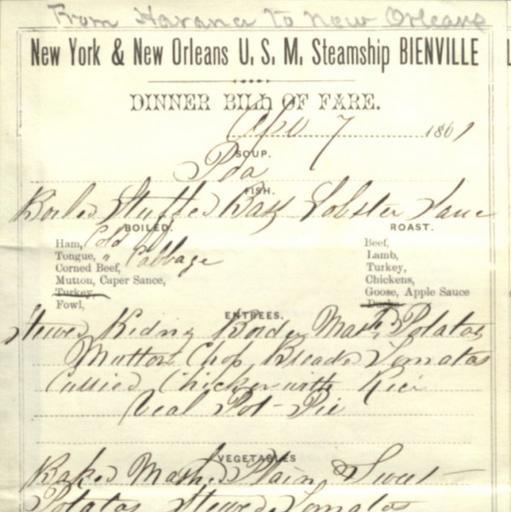 From Havana to New Orleans
New York & New Orleans U. S. M. Steamship BIENVILLE
DINNER BILL OF FARE.
7 1861
SOUP.
Pea
FISH.
Boiled Stuffed Bass Lobster Sauce
BOILED. ROAST.
Ham, Cold Beef,
Tongue, " Cabbage Lamb,
Corned Beef, Turkey,
Mutton, Caper Sance, Chickens,
Turkey, Goose, Apple Sauce
Fowl, Ducks
ENTREES.
Stewed Kidny Border Mashd Potatos
Mutton Chop Breaded Tomatos
Curried Chicken with Rice
Veal Pot-Pie
VEGETABLES
Baked Mashed Plain & Sweet
Potatos Stewed Tomatos